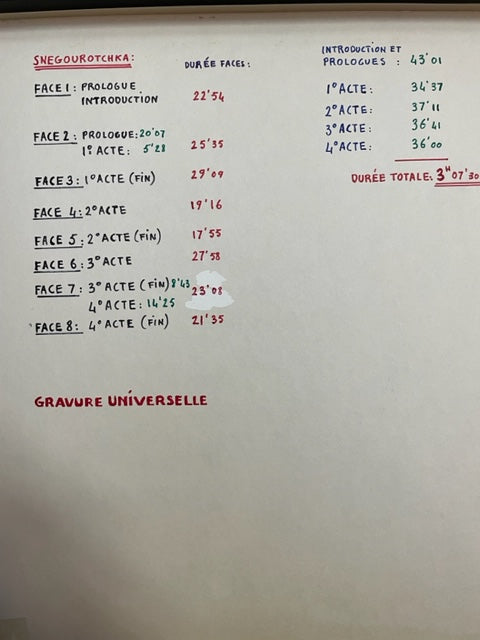 SNEGOUROTCHKA:
DURÉE FACES:
FACE 1: PROLOGUE
INTRODUCTION 22'54
FACE 2: PROLOGUE: 20'07
1º ACTE: 5'28 25'35
FACE 3: 1º ACTE (FIN) 29'09
FACE 4: 2º ACTE 19'16
FACE 5: 2º ACTE (FIN) 17'55
FACE 6: 3º ACTE 27'58
FACE 7: 3º ACTE (FIN) 8'43
4º ACTE: 14'25 23'08
FACE 8: 4º ACTE (FIN) 21'35
GRAVURE UNIVERSELLE
INTRODUCTION ET
PROLOGUES: 43'01
1º ACTE: 34'37
2º ACTE: 37'11
3º ACTE: 36'41
4º ACTE: 36'00
DURÉE TOTALE: 3H 07'30